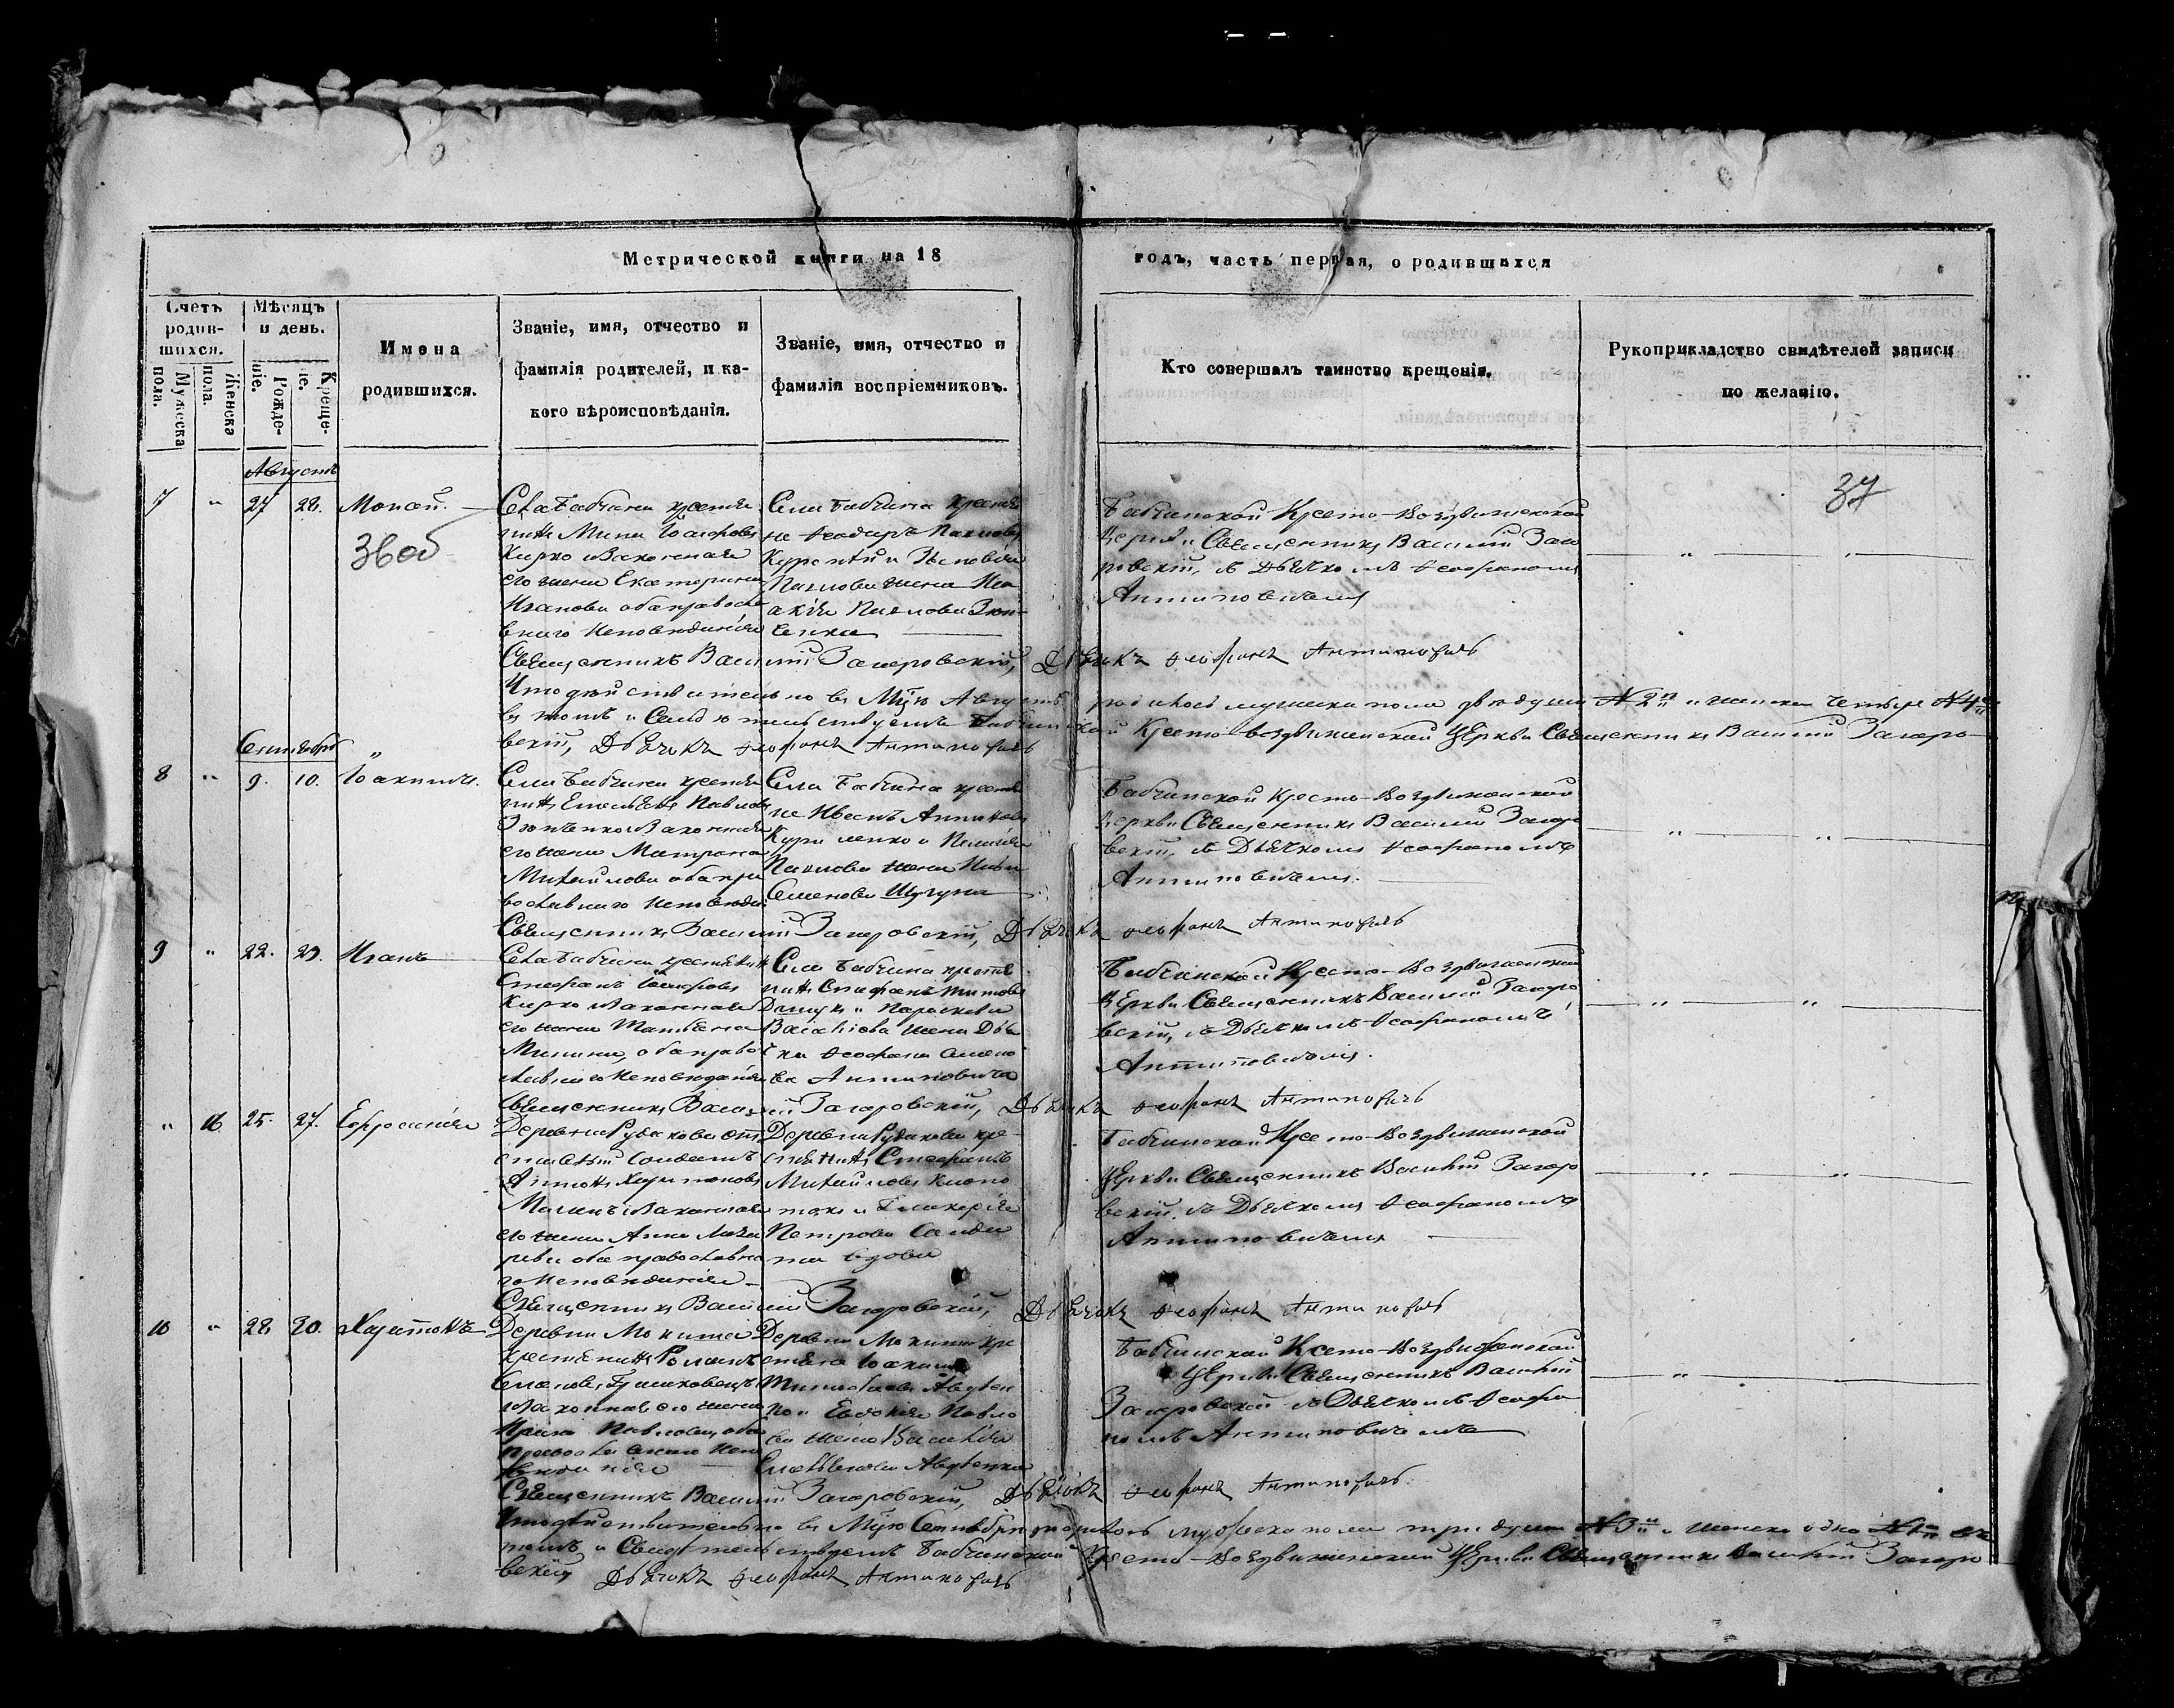 Метрической книги на 18
годъ, часть первая, о родившихся
Счетъ родив-шихся.
Мужеска пола.
Женска пола.
Мѣсяцъ и день.
Рожде-ніе.
Креще-ніе.
Имена
родившихся.
Званіе, имя, отчество и
фамилія родителей, и ка-
кого вѣроисповѣданія.
Званіе, имя, отчество и
фамилія воспріемниковъ.
Кто совершалъ таинство крещенія.
Рукоприкладство свидѣтелей записи
по желанію.
37
Августъ
7 " 27 28. Мокій.
36об
Села Бабчина крестья
нинъ Мина
Кирко и законная
его жена Екатерина
Иванова оба правосла
внаго исповѣданія
Села Бабчина крестья
Ѳеодоръ Павловъ
Павлова жена
Павлова
Бабчинской Кресто-Воздвиженской
Церкви Священникъ Василій Заго
ровскій, съ Дьячкомъ Ѳеофаномъ
Антиповичемъ
Священникъ Василій Загоровскій, Дьячокъ Ѳеофанъ Антиповичъ
Что дѣйствительно въ Мцѣ Августѣ родилось мужеска пола двѣ души №2 и женска четыре №4
въ томъ и Свидѣтельствуемъ Бабчинской Кресто-воздвиженской Церкви Священникъ Василій Загоро-
вскій, Дьячокъ Ѳеофанъ Антиповичъ
Сентябрь
8 " 9. 10. Іоакимъ.
Села Бабчина крестья
нинъ Емельянъ Павловъ
и законная
его жена Матрона
Михайлова оба пра
вославнаго исповѣданія
Села Бабчина крестья
Иванъ
и Пелагія
Павлова жена
Семенова Шугуна
Бабчинской Кресто-Воздвиженской
Церкви Священникъ Василій Загоро
вскій, съ Дьячкомъ Ѳеофаномъ
Антиповичемъ.
Священникъ Василій Загоровскій, Дьячокъ Ѳеофанъ Антиповичъ
9 " 22. 23. Иванъ
Села Бабчина крестьянинъ
Стефанъ
Кирко и законная
его жена Татьяна
Минина, оба право
славнаго исповѣданія
Села Бабчина крестья
нинъ Стефанъ Титовъ
и Параскева
Васильева жена Дья
чка Ѳеофана Симео
на Антиповича
Бабчинской Кресто-Воздвиженской
Церкви Священникъ Василій Загоро
вскій, съ Дьячкомъ Ѳеофаномъ
Антиповичемъ.
Священникъ Василій Загоровскій, Дьячокъ Ѳеофанъ Антиповичъ
" 16. 25. 27. Евфросинія
Деревни Рудакова
солдатъ
Антонъ Харитоновъ
и законная
его жена Анна Лаза
рева оба православна
го исповѣданія
Деревни Рудакова кре
стьянинъ Стефанъ
Михайловъ
и Гликерія
Петрова Солда
тка вдова
Бабчинской Кресто-Воздвиженской
Церкви Священникъ Василій Загоро
вскій, съ Дьячкомъ Ѳеофаномъ
Антиповичемъ
Священникъ Василій Загоровскій, Дьячокъ Ѳеофанъ Антиповичъ
10 " 28. 30. Харитонъ
Деревни Мокиша
крестьянинъ Романъ
и законная его жена
Ирина Павлова, оба
православнаго испо
вѣданія
Деревни Мокиша кре
стьяне Іоакимъ
Тимофеевъ Авдѣен
ко и Евдокія Павло
ва жена Василія
Емельянова Авдѣенка
Бабчинской Кресто-Воздвиженской
Церкви Священникъ Василій
Загоровскій съ Дьячкомъ Ѳеофа
номъ Антиповичемъ
Священникъ Василій Загоровскій, Дьячокъ Ѳеофанъ Антиповичъ.
Что дѣйствительно въ Мцѣ Сентябрѣ родилось мужеска пола три души №3 и женска одна №1 въ
томъ и Свидѣтельствуемъ Бабчинской Кресто-Воздвиженской Церкви Священникъ Василій Загоро
вскій, Дьячокъ Ѳеофанъ Антиповичъ